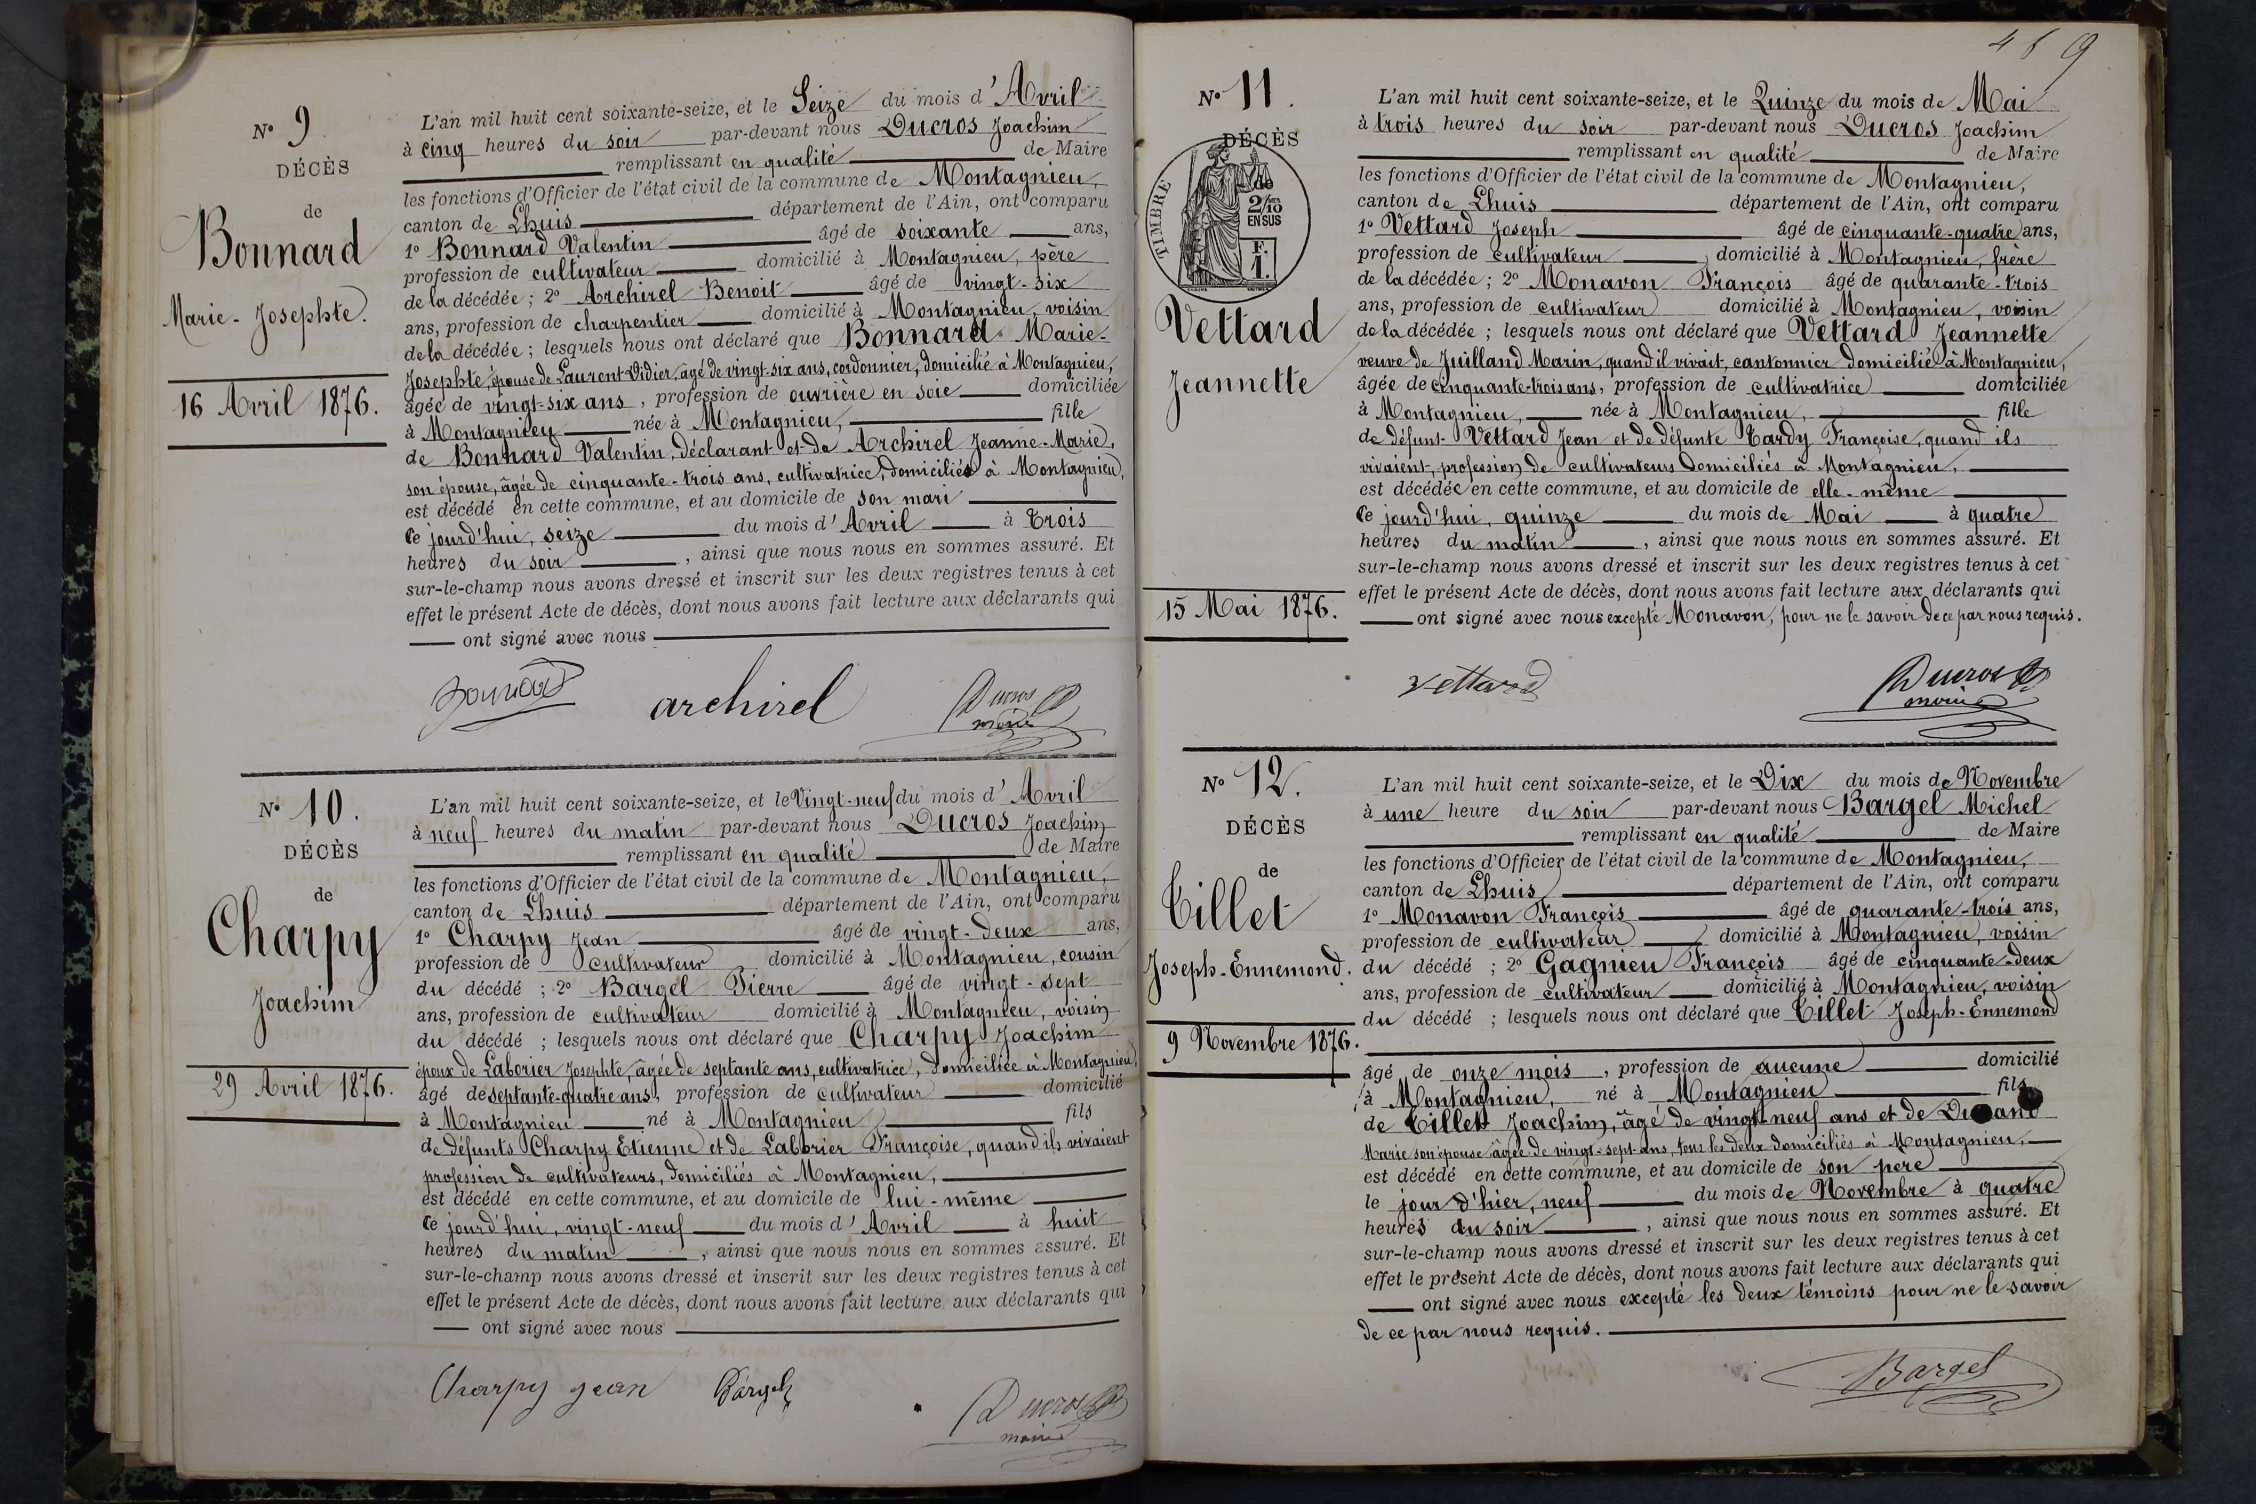 N° 9
DÉCÈS
de
Bonnard
Marie-Josephte.
16 Avril 1876.
L'an mil huit cent soixante-seize, et le Seize du mois d'Avril
à cinq heures du soir par-devant nous Ducros Joachim
remplissant en qualité de Maire
les fonctions d'Officier de l'état civil de la commune de Montagnieu,
canton de Lhuis département de l'Ain, ont comparu
1° Bonnard Valentin âgé de soixante ans,
profession de cultivateur domicilié à Montagnieu, père
de la décédée; 2° Archirel Benoit âgé de vingt-six
ans, profession de charpentier domicilié à Montagnieu, voisin
de la décédée; lesquels nous ont déclaré que Bonnard Marie-
Josephte, épouse de Laurent Didier, âgé de vingt-six ans, cordonnier, domicilié à Montagnieu,
âgée de vingt-six ans, profession de ouvrière en soie domiciliée
à Montagnieu née à Montagnieu, fille
de Bonnard Valentin, déclarant et de Archirel Jeanne-Marie,
son épouse, âgée de cinquante-trois ans, cultivatrice, domiciliés à Montagnieu,
est décédé en cette commune, et au domicile de son mari
ce jourd'hui, seize du mois d'Avril à trois
heures du soir, ainsi que nous nous en sommes assuré. Et
sur-le-champ nous avons dressé et inscrit sur les deux registres tenus à cet
effet le présent Acte de décès, dont nous avons fait lecture aux déclarants qui
ont signé avec nous
Bonnard archirel Ducros
maire
N° 10.
DÉCÈS
de
Charpy
Joachim
29 Avril 1876.
L'an mil huit cent soixante-seize, et le Vingt-neuf du mois d'Avril
à neuf heures du matin par-devant nous Ducros Joachim
remplissant en qualité de Maire
les fonctions d'Officier de l'état civil de la commune de Montagnieu,
canton de Lhuis département de l'Ain, ont comparu
1° Charpy Jean âgé de vingt-deux ans,
profession de cultivateur domicilié à Montagnieu, cousin
du décédé; 2° Bargel Pierre âgé de vingt-sept
ans, profession de cultivateur domicilié à Montagnieu, voisin
du décédé; lesquels nous ont déclaré que Charpy Joachim
époux de Laborier Josephte, âgée de septante ans, cultivatrice, domiciliée à Montagnieu,
âgé de septante-quatre ans, profession de cultivateur domicilié
à Montagnieu né à Montagnieu fils
de défunts Charpy Etienne et de Laborier Françoise, quand ils vivaient
profession de cultivateurs, domiciliés à Montagnieu,
est décédé en cette commune, et au domicile de lui-même
ce jourd'hui, vingt-neuf du mois d'Avril à huit
heures du matin, ainsi que nous nous en sommes assuré. Et
sur-le-champ nous avons dressé et inscrit sur les deux registres tenus à cet
effet le présent Acte de décès, dont nous avons fait lecture aux déclarants qui
ont signé avec nous
Charpy jean Bargel Ducros
maire
N° 11.
DÉCÈS
de
TIMBRE
2/10
EN SUS
F.
1.
Vettard
Jeannette
15 Mai 1876.
L'an mil huit cent soixante-seize, et le Quinze du mois de Mai
à trois heures du soir par-devant nous Ducros Joachim
remplissant en qualité de Maire
les fonctions d'Officier de l'état civil de la commune de Montagnieu,
canton de Lhuis département de l'Ain, ont comparu
1° Vettard Joseph âgé de cinquante-quatre ans,
profession de cultivateur, domicilié à Montagnieu, frère
de la décédée; 2° Monavon François âgé de quarante-trois
ans, profession de cultivateur domicilié à Montagnieu, voisin
de la décédée; lesquels nous ont déclaré que Vettard Jeannette
veuve de Juilland Marin, quand il vivait, cantonnier domicilié à Montagnieu,
âgée de cinquante-trois ans, profession de cultivatrice domiciliée
à Montagnieu, née à Montagnieu, fille
de défunt Vettard Jean et de défunte Tardy Françoise, quand ils
vivaient, profession de cultivateurs domiciliés à Montagnieu,
est décédée en cette commune, et au domicile de elle-même
ce jourd'hui, quinze du mois de Mai à quatre
heures du matin, ainsi que nous nous en sommes assuré. Et
sur-le-champ nous avons dressé et inscrit sur les deux registres tenus à cet
effet le présent Acte de décès, dont nous avons fait lecture aux déclarants qui
ont signé avec nous excepté Monavon, pour ne le savoir de ce par nous requis.
Vettard Ducros
maire
N° 12.
DÉCÈS
de
Tillet
Joseph-Ennemond.
9 Novembre 1876.
L'an mil huit cent soixante-seize, et le Dix du mois de Novembre
à une heure du soir par-devant nous Bargel Michel
remplissant en qualité de Maire
les fonctions d'Officier de l'état civil de la commune de Montagnieu,
canton de Lhuis département de l'Ain, ont comparu
1° Monavon François âgé de quarante-trois ans,
profession de cultivateur domicilié à Montagnieu, voisin
du décédé; 2° Gagnieu François âgé de cinquante-deux
ans, profession de cultivateur domicilié à Montagnieu, voisin
du décédé; lesquels nous ont déclaré que Tillet Joseph-Ennemond
âgé de onze mois, profession de aucune domicilié
à Montagnieu, né à Montagnieu fils
de Tillet Joachim, âgé de vingt-neuf ans et de
Marie son épouse âgée de vingt-sept ans, tous les deux domiciliés à Montagnieu,
est décédé en cette commune, et au domicile de son père
le jour d'hier, neuf du mois de Novembre à quatre
heures du soir, ainsi que nous nous en sommes assuré. Et
sur-le-champ nous avons dressé et inscrit sur les deux registres tenus à cet
effet le présent Acte de décès, dont nous avons fait lecture aux déclarants qui
ont signé avec nous excepté les deux témoins pour ne le savoir
de ce par nous requis.
Bargel